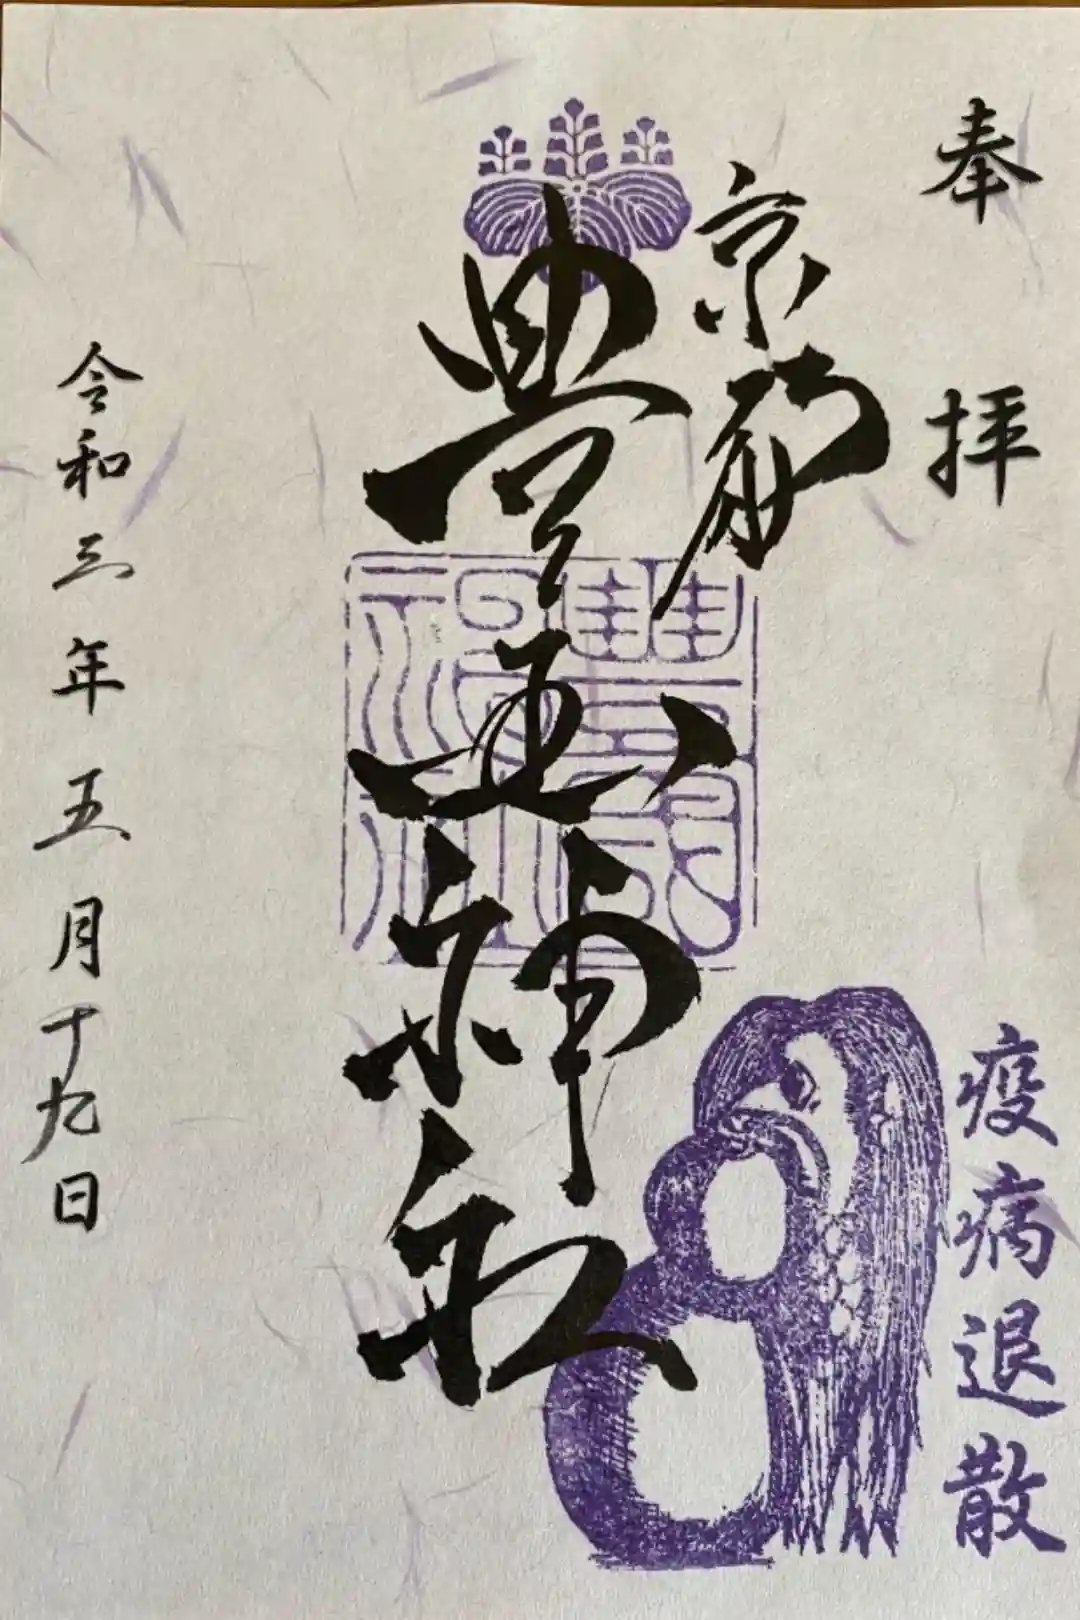 奉拝
疫病退散
京都
豊国神社
豊国神社
令和三年五月十九日